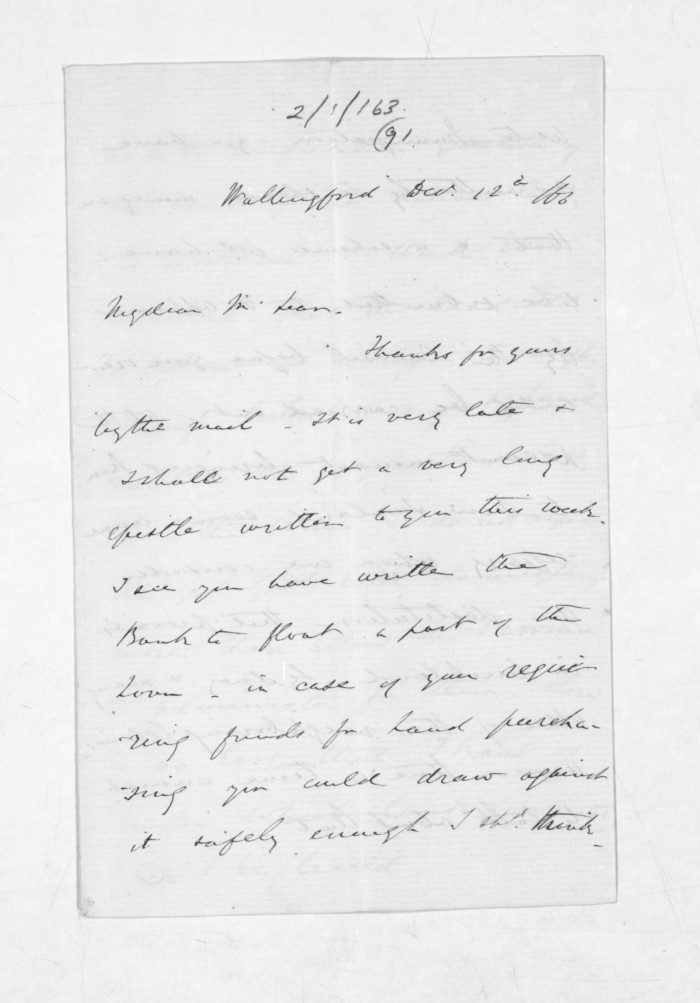 2/1/163.
(91.
Wallingford Decr. 12th /66
My dear Mc Lean.
Thanks for yours
by the mail - It is very late &
I shall not get a very long
epistle written to you this week.
I see you have written the
Bank to float a part of the
Loan - in case of your requi-
ring funds for Land purcha-
sing you could draw against
it safely enough I shd. think -